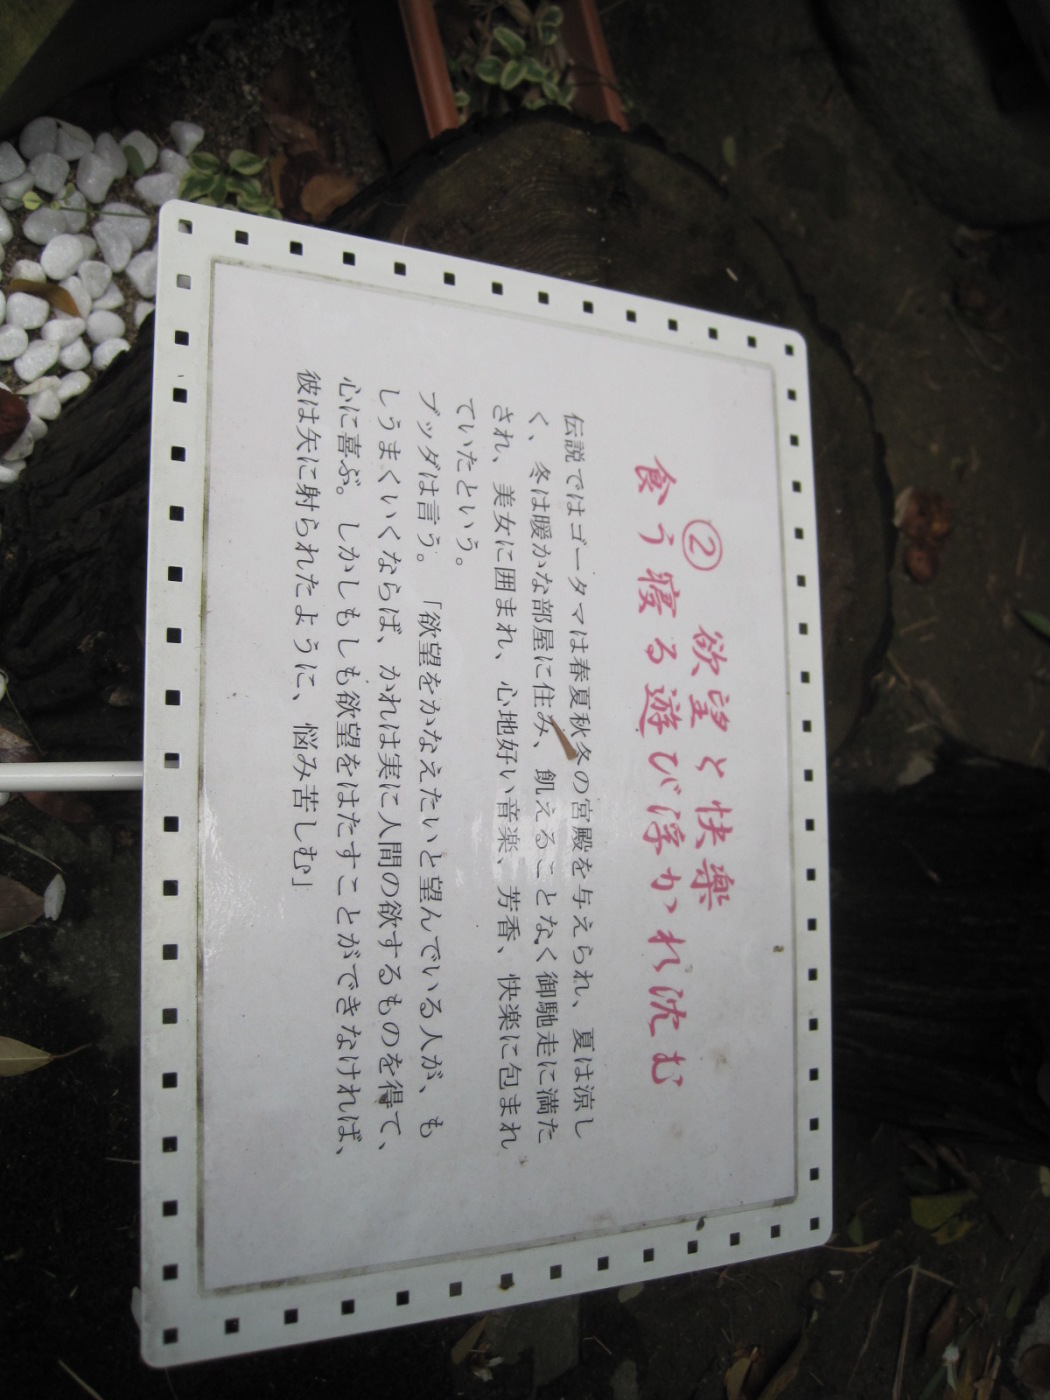 ② 欲望と快楽
食う寝る遊び浮かれ沈む
伝説ではゴータマは春夏秋冬の宮殿を与えられ、夏は涼し
く、冬は暖かな部屋に住み、飢えることなく御馳走に満た
され、美女に囲まれ、心地好い音楽、芳香、快楽に包まれ
ていたという。
ブッダは言う。「欲望をかなえたいと望んでいる人が、も
しうまくいくならば、かれは実に人間の欲するものを得て、
心に喜ぶ。しかしもしも欲望をはたすことができなければ、
彼は矢に射られたように、悩み苦しむ」